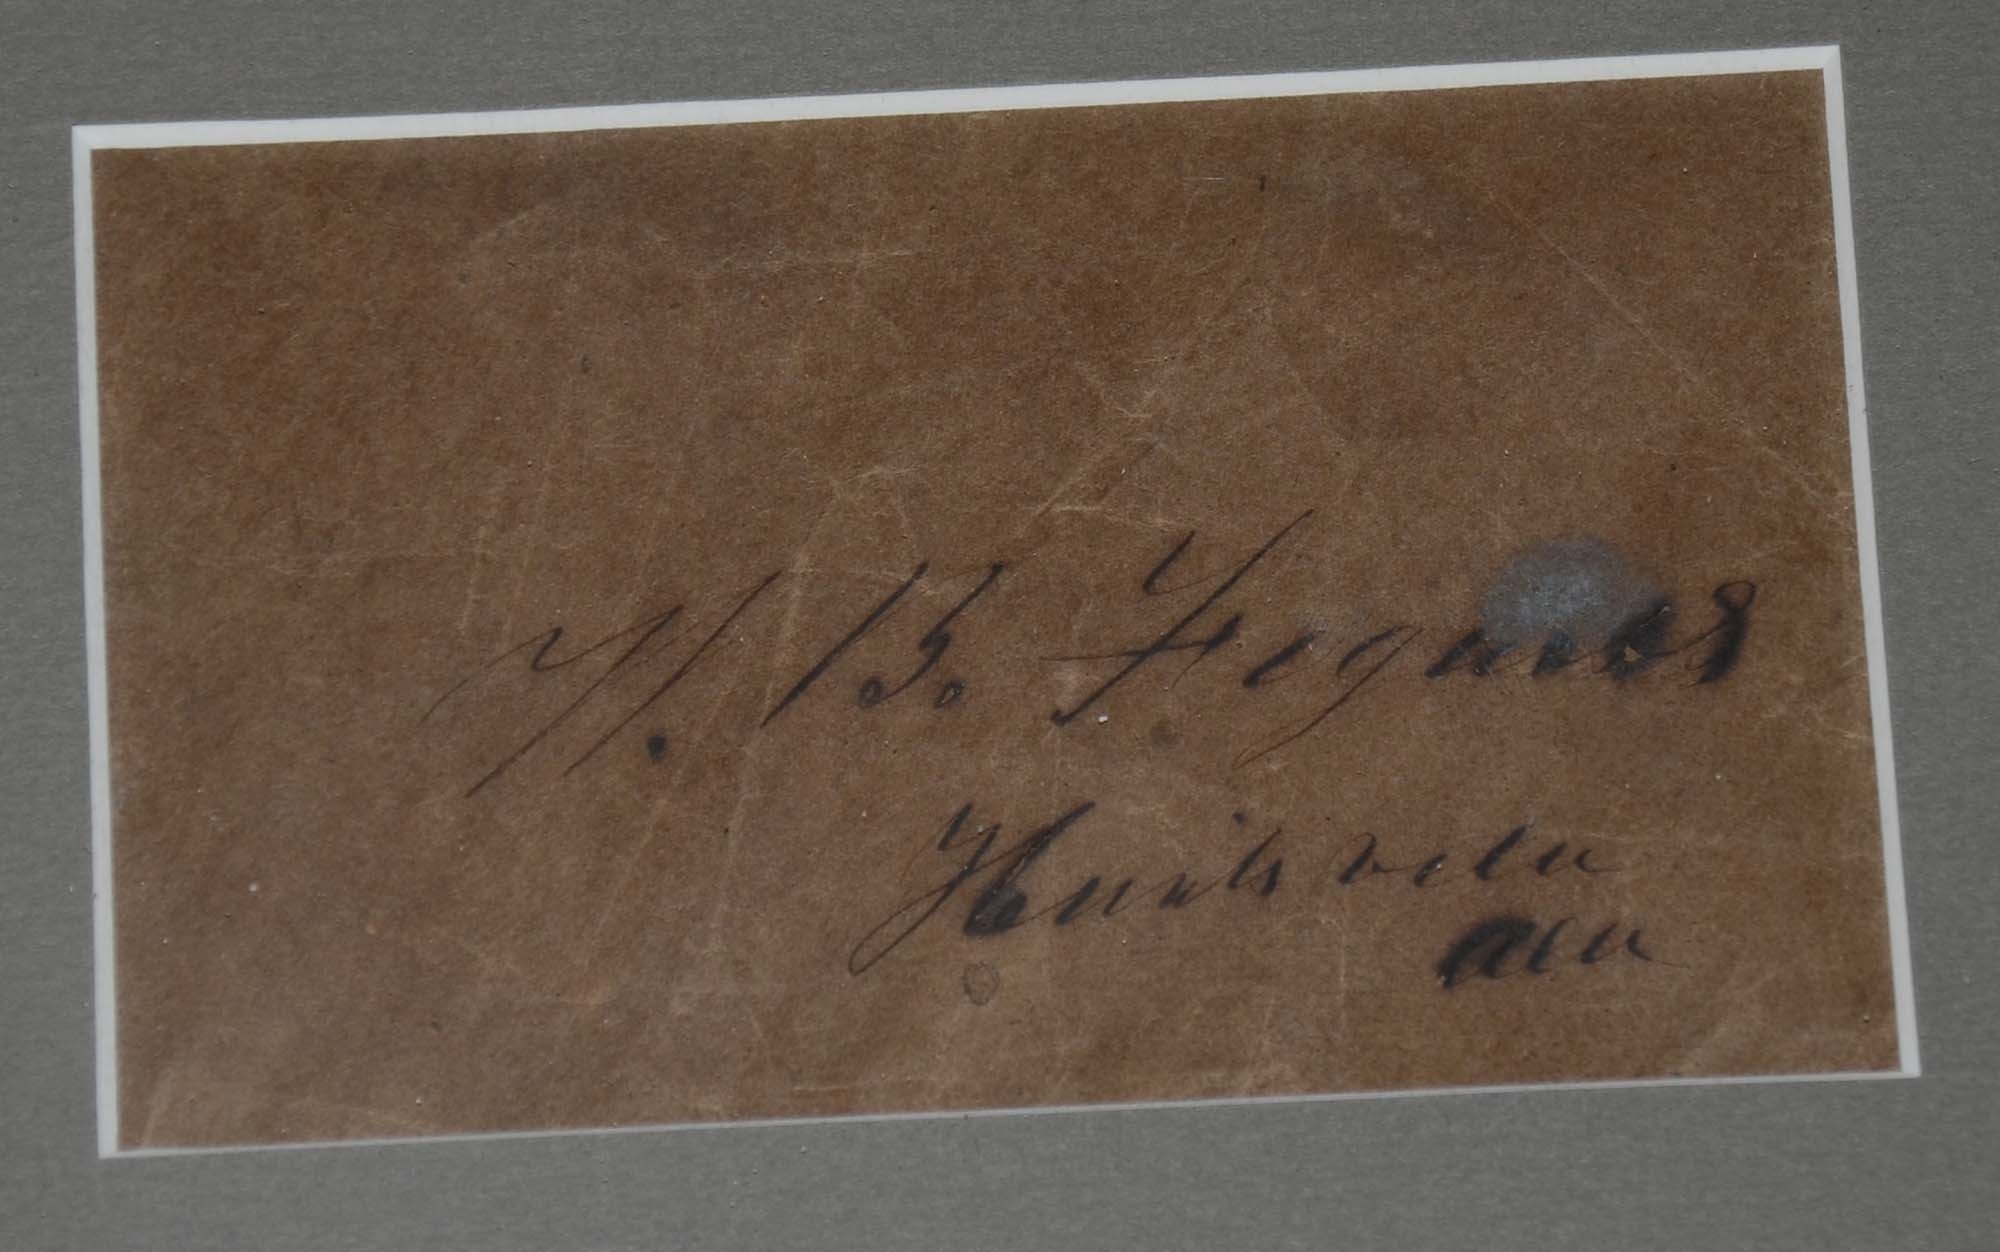 N. B. Fegures
Huntsvila
ala